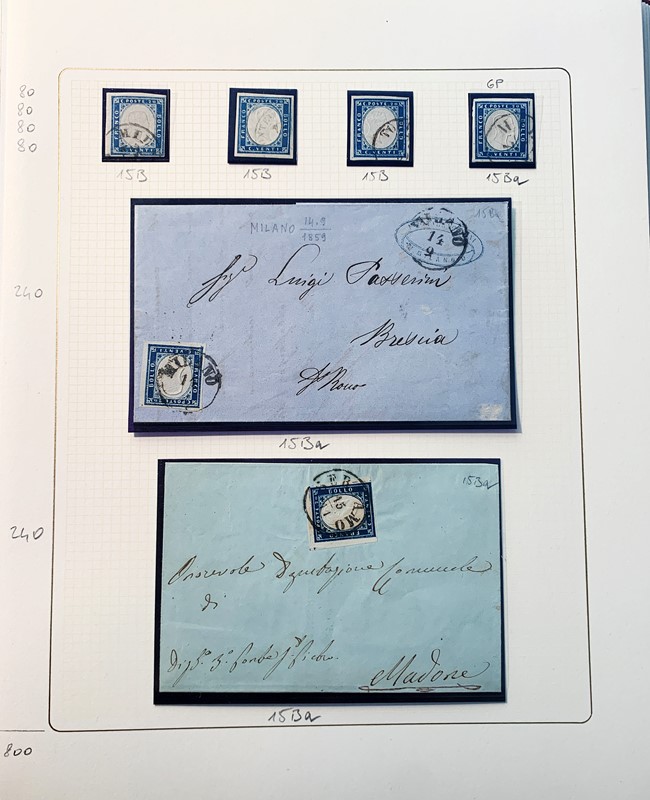 80
80
80
80
GP
15B
15B
15B
15Ba
FRANCO
C. POSTE
BOLLO
C. VENTI
240
MILANO 14.9
1859
15Ba
MILANO
14
9
Sigr Luigi Passerini
Brescia
MILANO
15Ba
240
15Ba
BERGAMO
15
BOLLO
Onorevole Deputazione Comunale
di
Madone
15Ba
800